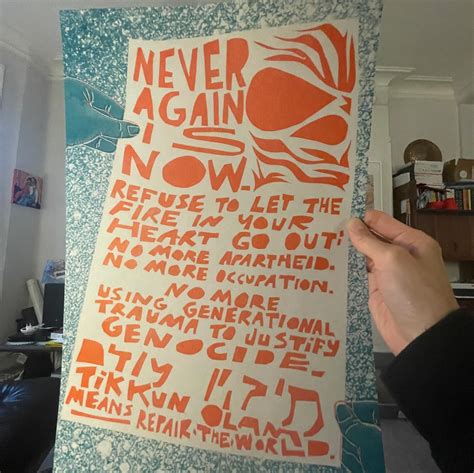 NEVER
AGAIN
IS
NOW.
REFUSE TO LET THE
FIRE IN YOUR
HEART GO OUT:
NO MORE APARTHEID.
NO MORE OCCUPATION.
NO MORE
USING GENERATIONAL
TRAUMA TO JUSTIFY
GENOCIDE.
תיקון עולם
TIKKUN OLAM
MEANS REPAIR THE WORLD.